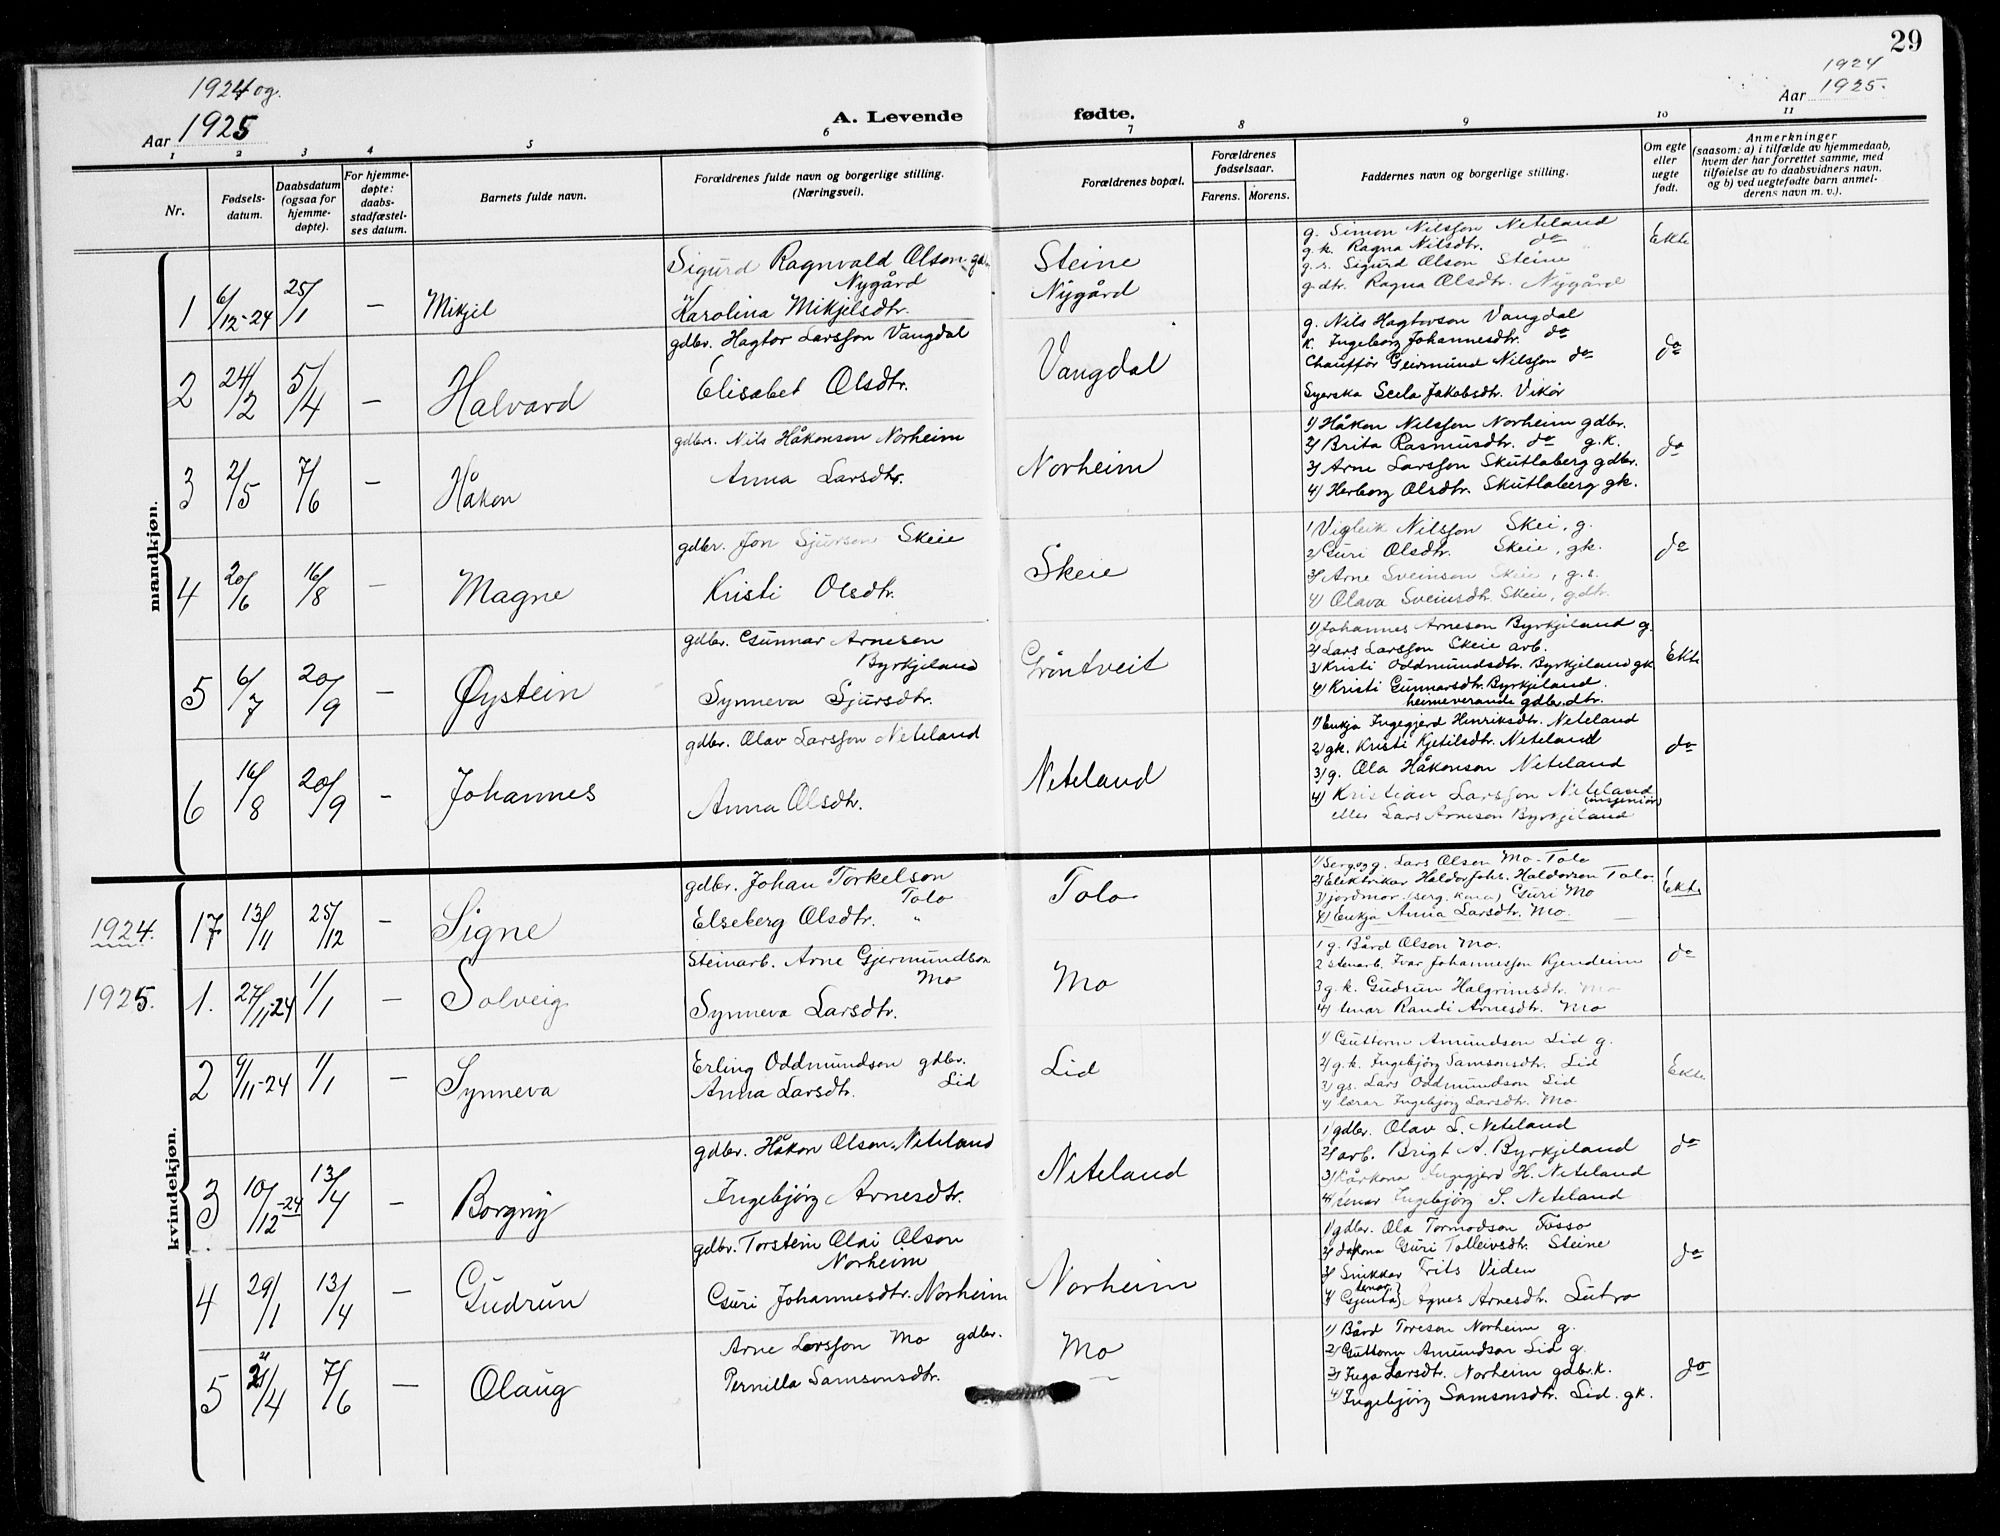 29
1924 og
Aar 1925
A. Levende fødte.
1924
Aar 1925.
1 2 3 4 5 6 7 8 9 10 11
Nr.
Fødsels-
datum.
Daabsdatum
(ogsaa for
hjemme-
døpte).
For hjemme-
døpte:
daabs-
stadfæstel-
ses datum.
Barnets fulde navn.
Forældrenes fulde navn og borgerlige stilling.
(Næringsvei).
Forældrenes bopæl.
Forældrenes
fødselsaar.
Farens. Morens.
Faddernes navn og borgerlige stilling.
Om egte
eller
uegte
født.
Anmerkninger
(saasom: a) i tilfælde av hjemmedaab,
hvem der har forrettet samme, med
tilføielse av to daabsvidners navn,
og b) ved uegtefødte barn anmel-
derens navn m. v.).
mandkjøn.
1 6/12-24 25/1 – Mikjel
Sigurd Ragnvald Olson gdbr.
Nygård
Karolina Mikjelsdtr.
Steine
Nygård
g. Simon Nilsson Neteland
g.k. Ragna Nilsdtr. do
g.s. Sigurd Olson Steine
g.dtr. Ragna Olsdtr. Nygård
Ekte
2 24/2 5/4 – Halvard
gdbr. Hagtor Larsson Vangdal
Elisabet Olsdtr.
Vangdal
g. Nils Hagtorson Vangdal
k. Ingeborg Johannesdtr. do
Chauffør Geirmund Nilsson do
Syerska Seela Jakobsdtr. Vikør
do
3 2/5 7/6 – Håkon
gdbr. Nils Håkonson Norheim
Anna Larsdtr.
Norheim
1) Håkon Nilsson Norheim gdbr.
2) Brita Rasmusdtr. do g.k.
3) Arne Larsson Skutlaberg gdbr.
4) Herborg Olsdtr. Skutlaberg gk.
do
4 20/6 16/8 – Magne
gdbr. Jon Sjurson Skeie
Kristi Olsdtr.
Skeie
1) Vigleik Nilsson Skei, g.
2) Guri Olsdtr. Skeie, gk.
3) Arne Sveinson Skeie, g.s.
4) Olava Sveinsdtr. Skeie, gdtr.
do
5 6/7 20/9 – Øystein
gdbr. Gunnar Arneson
Byrkjeland
Synneva Sjursdtr.
Gröntveit
1) Johannes Arneson Byrkjeland g.
2) Lars Larsson Skeie arb.
3) Kristi Oddmundsdtr. Byrkjeland gk.
4) Kristi Gunnarsdtr. Byrkjeland.
heimeverande gdbr.dtr.
Ekte
6 16/8 20/9 – Johannes
gdbr. Olav Larsson Neteland
Anna Olsdtr.
Neteland
1) Enkja Ingegjerd Henriksdtr. Neteland
2) gk. Kristi Kjetilsdtr. Neteland
3) g. Ola Håkonson Neteland
4) Kristian Larsson Neteland
(ingeniør)
eller Lars Arneson Byrkjeland
do
kvindekjøn.
1924. 17 13/11 25/12 – Signe
gdbr. Johan Torkelson
Tolo
Elseberg Olsdtr. "
Tolo
1) Serg og g. Lars Olson Mo-Tolo
2) Elektrikar Haldor Johs. Haldorson Tolo
3) jordmor (serg. kona) Guri Mo
4) Enkja Anna Larsdtr. Mo.
Ekte
1925. 1. 27/11-24 1/1 – Solveig
Steinarb. Arne Gjermundson
Mo
Synneva Larsdtr.
Mo
1 g. Bård Olson Mo.
2 stenarb. Ivar Johannesson Kjendeim
3 g.k. Gudrun Halgrimsdtr. Mo
4) tenar Randi Arnesdtr. Mo
do
2 9/11-24 1/1 – Synneva
Erling Oddmundson gdbr.
Anna Larsdtr. Lid
Lid
1) Guttorm Amundson Lid g.
2) g.k. Ingebjörg Samsonsdtr. Lid
3) gs. Lars Oddmundson Lid
4) lærar Ingebjörg Larsdtr. Mo
Ekte
3 10/12-24 13/4 – Borgny
gdbr. Håkon Olson Neteland
Ingebjörg Arnesdtr.
Neteland
1) gdbr. Olav L. Neteland
2) arb. Brigt A. Byrkjeland
3) Kårkona Ingegjerd H. Neteland
4) tenar Ingebjörg S. Neteland
do
4 29/1 13/4 – Gudrun
gdbr. Torstein Olai Olson
Norheim
Guri Johannesdtr. Norheim
Norheim
1) gdbr. Ola Tormodson Fosso
2) Guri Tolleivsdtr. Steine
3) Snikkar Frits Viden
tenar
4) Gjenta Agnes Arnesdtr. Lutro
do
5 21/4 7/6 – Olaug
Arne Larsson Mo gdbr.
Pernilla Samsonsdtr.
Mo
—
1) Bård Toreson Norheim g.
2) Guttorm Amundson Lid g.
3) Inga Larsdtr. Norheim gdbr.k.
4) Ingebjörg Samsonsdtr. Lid. gk.
do